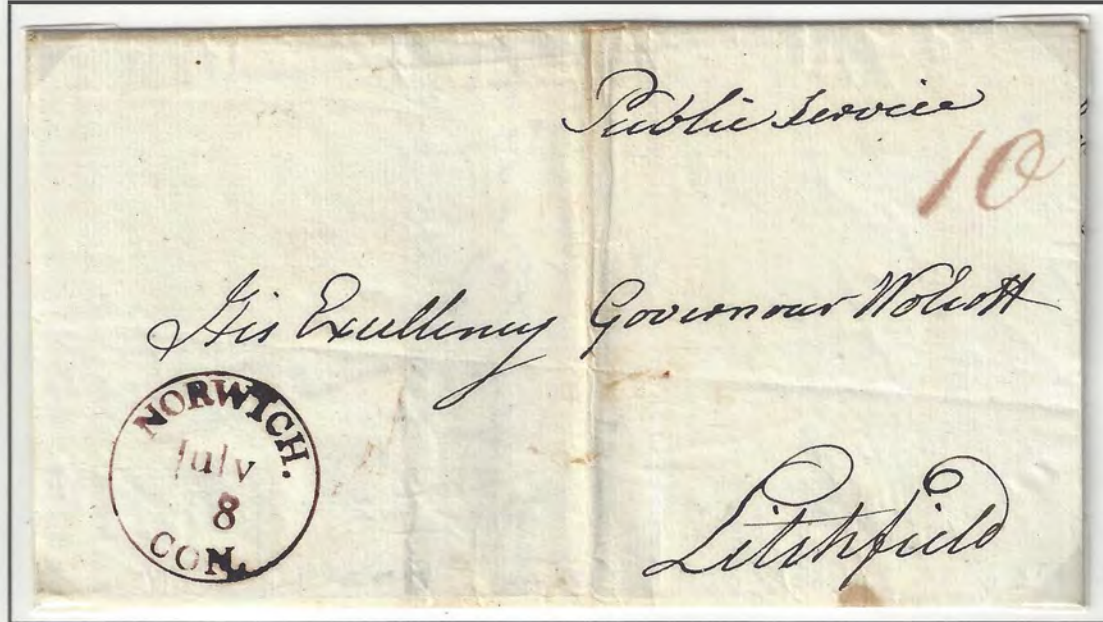 Public Service
10
His Excellency Governour Wolcott
NORWICH.
July
8
CON.
Litchfield